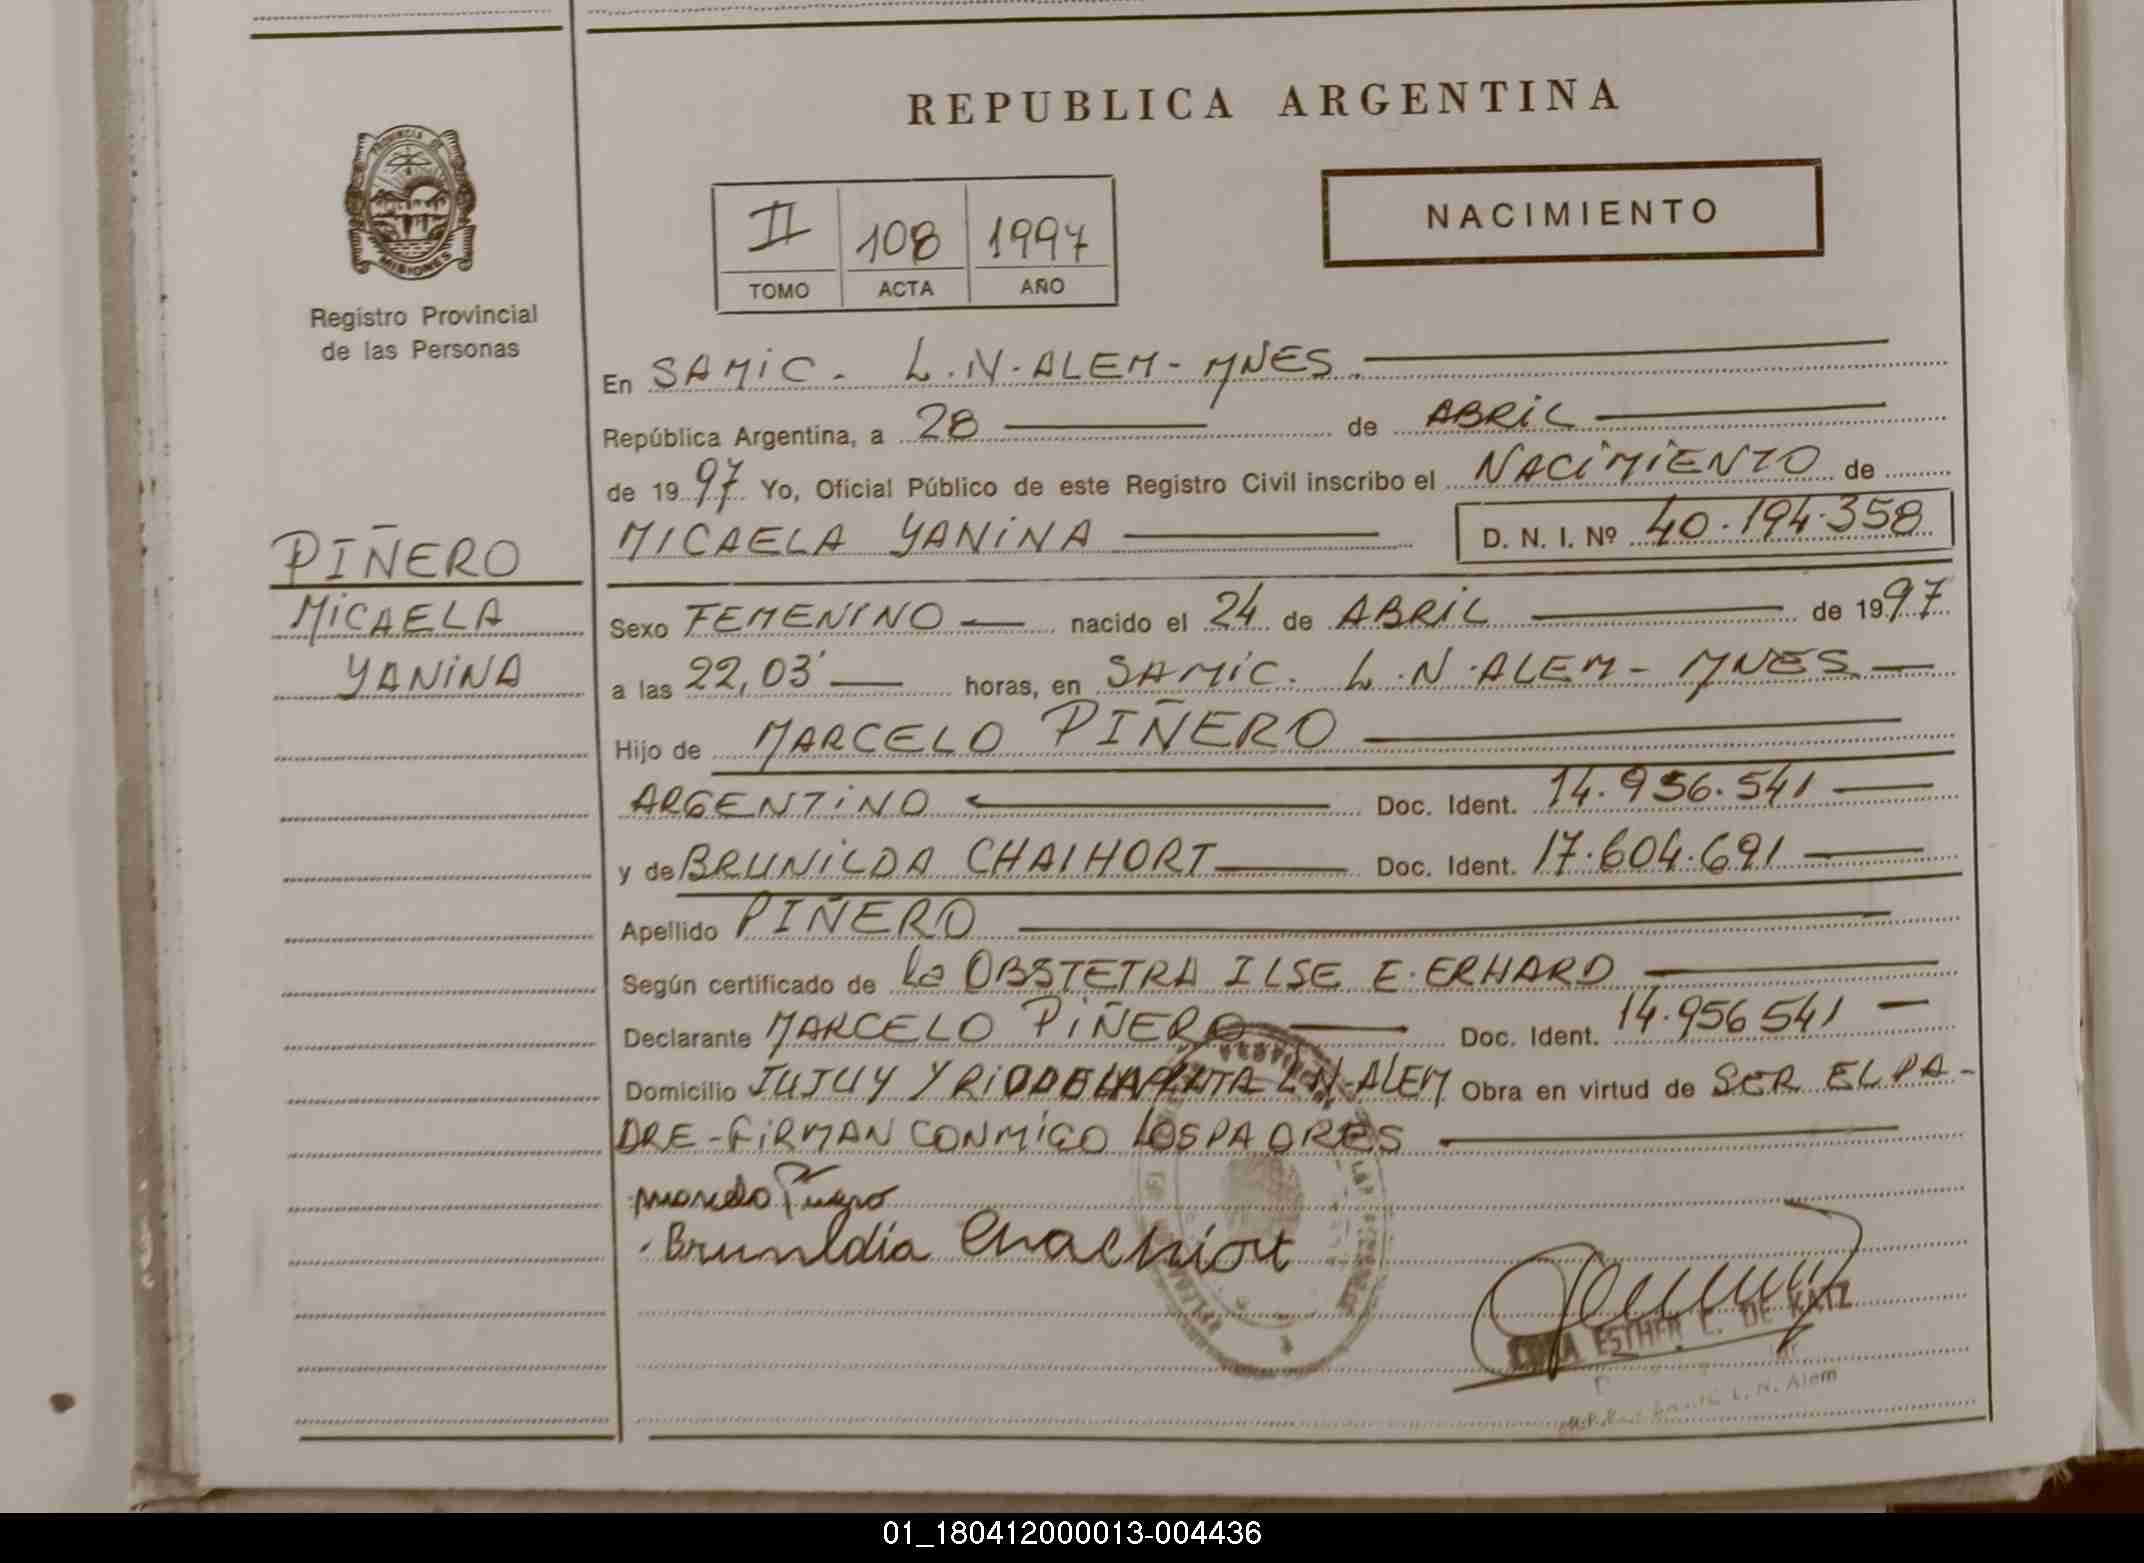 REPUBLICA ARGENTINA
PROVINCIA DE
MISIONES
Registro Provincial
de las Personas
II 108 1997
TOMO ACTA AÑO
NACIMIENTO
En SAMIC. L.N.ALEM-MNES.
República Argentina, a 28 de ABRIL
de 1997 Yo, Oficial Público de este Registro Civil inscribo el NACIMIENTO de
MICAELA YANINA D. N. I. Nº 40.194.358
PIÑERO
MICAELA
YANINA
Sexo FEMENINO nacido el 24 de ABRIL de 1997
a las 22,03' horas, en SAMIC. L.N.ALEM-MNES
Hijo de MARCELO PIÑERO
ARGENTINO Doc. Ident. 14.956.541
y de BRUNILDA CHAIHORT Doc. Ident. 17.604.691
Apellido PIÑERO
Según certificado de la OBSTETRA ILSE E. ERHARD
Declarante MARCELO PIÑERO Doc. Ident. 14.956541
Domicilio JUJUY Y RIO DE LA PLATA L.N-ALEM Obra en virtud de SER EL PA-
DRE-FIRMAN CONMIGO LOS PADRES
Marcelo Piñero
Brunildia Chachiort
ESTHER C. DE KATZ
L. N. Alem
01_180412000013-004436